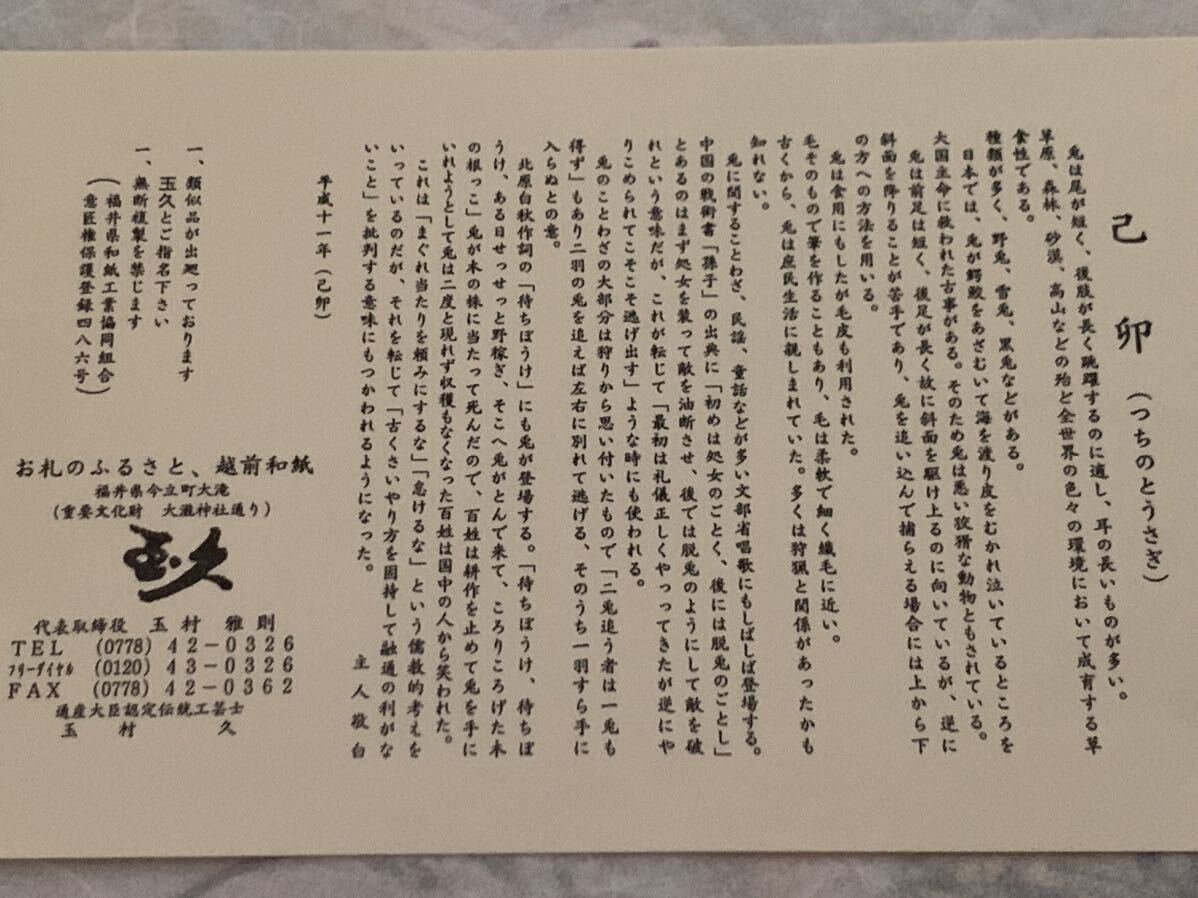 己卯（つちのとうさぎ）
兎は尾が短く、後肢が長く跳躍するのに適し、耳の長いものが多い。
草原、森林、砂漠、高山などの殆ど全世界の色々の環境において成育する草
食性である。
種類が多く、野兎、雪兎、黒兎などがある。
日本では、兎が鰐鮫をあざむいて海を渡り皮をむかれ泣いているところを
大国主命に救われた古事がある。そのため兎は悪い狡猾な動物ともされている。
兎は前足は短く、後足が長く故に斜面を駆け上るのに向いているが、逆に
斜面を降りることが苦手であり、兎を追い込んで捕らえる場合には上から下
の方への方法を用いる。
兎は食用にもしたが毛皮も利用された。
毛そのもので筆を作ることもあり、毛は柔軟で細く繊毛に近い。
古くから、兎は庶民生活に親しまれていた。多くは狩猟と関係があったかも
知れない。
兎に関することわざ、民謡、童話などが多い文部省唱歌にもしばしば登場する。
中国の戦術書「孫子」の出典に「初めは処女のごとく、後には脱兎のごとし」
とあるのはまず処女を装って敵を油断させ、後では脱兎のようにして敵を破
れという意味だが、これが転じて「最初は礼儀正しくやってきたが逆にや
りこめられてこそこそ逃げ出す」ような時にも使われる。
兎のことわざの大部分は狩りから思い付いたもので「二兎追う者は一兎も
得ず」もあり二羽の兎を追えば左右に別れて逃げる、そのうち一羽すら手に
入らぬとの意。
北原白秋作詞の「待ちぼうけ」にも兎が登場する。「待ちぼうけ、待ちぼ
うけ、ある日せっせっと野稼ぎ、そこへ兎がとんで来て、ころりころげた木
の根っこ」兎が木の株に当たって死んだので、百姓は耕作を止めて兎を手に
いれようとして兎は二度と現れず収穫もなくなった百姓は国中の人から笑われた。
これは「まぐれ当たりを頼みにするな」「怠けるな」という儒教的考えを
いっているのだが、それを転じて「古くさいやり方を固持して融通の利がな
いこと」を批判する意味にもつかわれるようになった。
主人敬白
平成十一年（己卯）
一、類似品が出廻っております
玉久とご指名下さい
一、無断複製を禁じます
（福井県和紙工業協同組合
意匠権保護登録四八六号）
お札のふるさと、越前和紙
福井県今立町大滝
(重要文化財　大瀧神社通り)
玉久
代表取締役　玉村　雅則
TEL (0778) 42-0326
フリーダイヤル (0120) 43-0326
FAX (0778) 42-0362
通産大臣認定伝統工芸士
玉村久